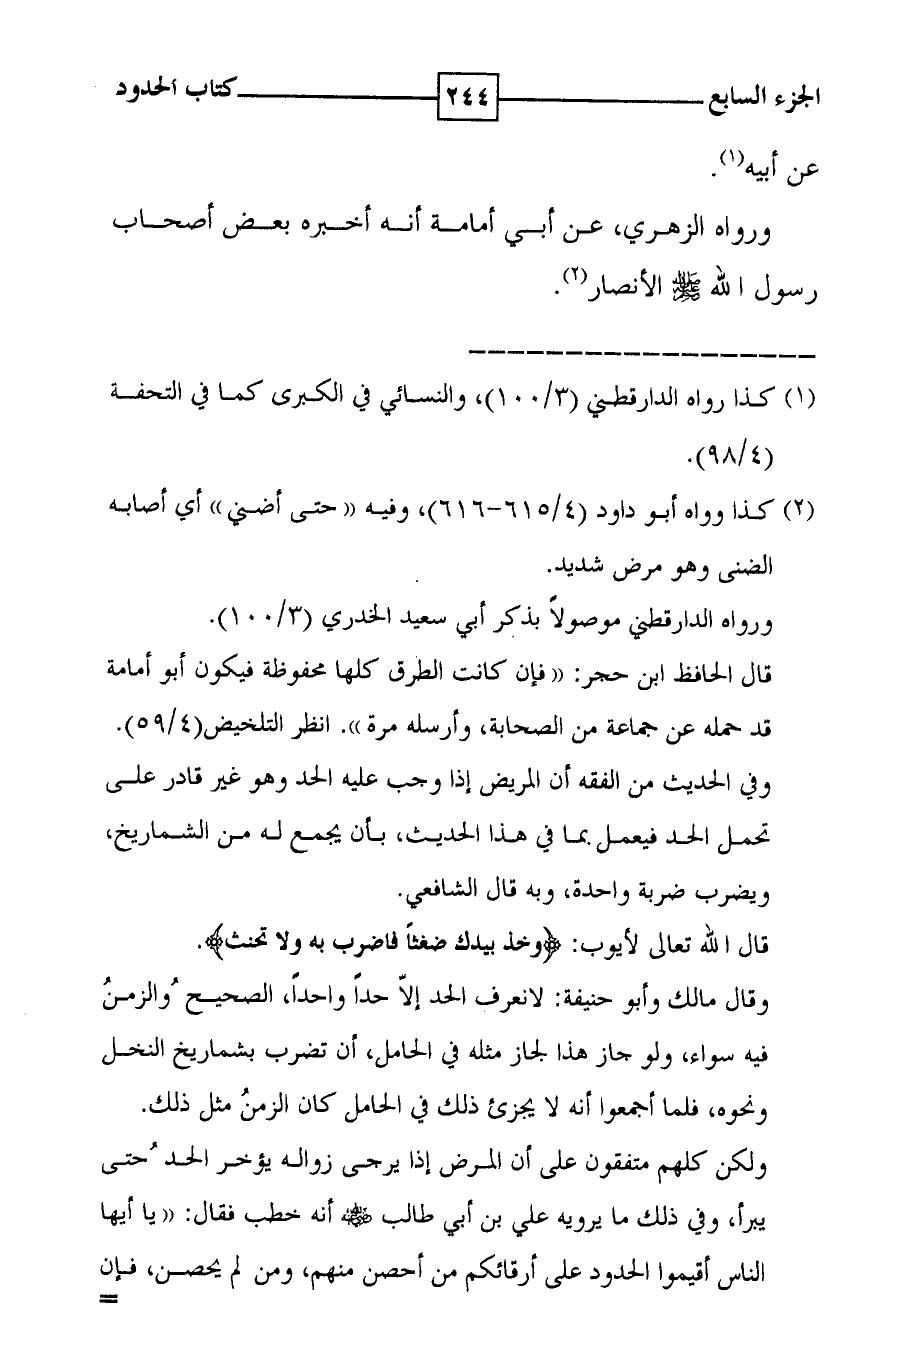 الجزء السابع ٢٤٤ كتاب الحدود
عن أبيه(١).
ورواه الزهري، عن أبي أمامة أنه أخبره بعض أصحاب
رسول الله ﷺ الأنصار(٢).
(١) كذا رواه الدارقطني (١٠٠/٣)، والنسائي في الكبرى كما في التحفة
(٩٨/٤).
(٢) كذا وواه أبو داود (٦١٥/٤-٦١٦)، وفيه «حتى أضني» أي أصابه
الضنى وهو مرض شديد.
ورواه الدارقطني موصولاً بذكر أبي سعيد الخدري (١٠٠/٣).
قال الحافظ ابن حجر: «فإن كانت الطرق كلها محفوظة فيكون أبو أمامة
قد حمله عن جماعة من الصحابة، وأرسله مرة». انظر التلخيص(٥٩/٤).
وفي الحديث من الفقه أن المريض إذا وجب عليه الحد وهو غير قادر على
تحمل الحد فيعمل بما في هذا الحديث، بأن يجمع له من الشماريخ،
ويضرب ضربة واحدة، وبه قال الشافعي.
قال الله تعالى لأيوب: ﴿وخذ بيدك ضغثاً فاضرب به ولا تحنث﴾.
وقال مالك وأبو حنيفة: لانعرف الحد إلاّ حداً واحداً، الصحيح ُوالزمنُ
فيه سواء، ولو جاز هذا لجاز مثله في الحامل، أن تضرب بشماريخ النخل
ونحوه، فلما أجمعوا أنه لا يجزئ ذلك في الحامل كان الزمنُ مثل ذلك.
ولكن كلهم متفقون على أن المرض إذا يرجى زواله يؤخر الحد ُحتى
يبرأ، وفي ذلك ما يرويه علي بن أبي طالب ﷺ أنه خطب فقال: «يا أيها
الناس أقيموا الحدود على أرقائكم من أحصن منهم، ومن لم يحصن، فإن
=